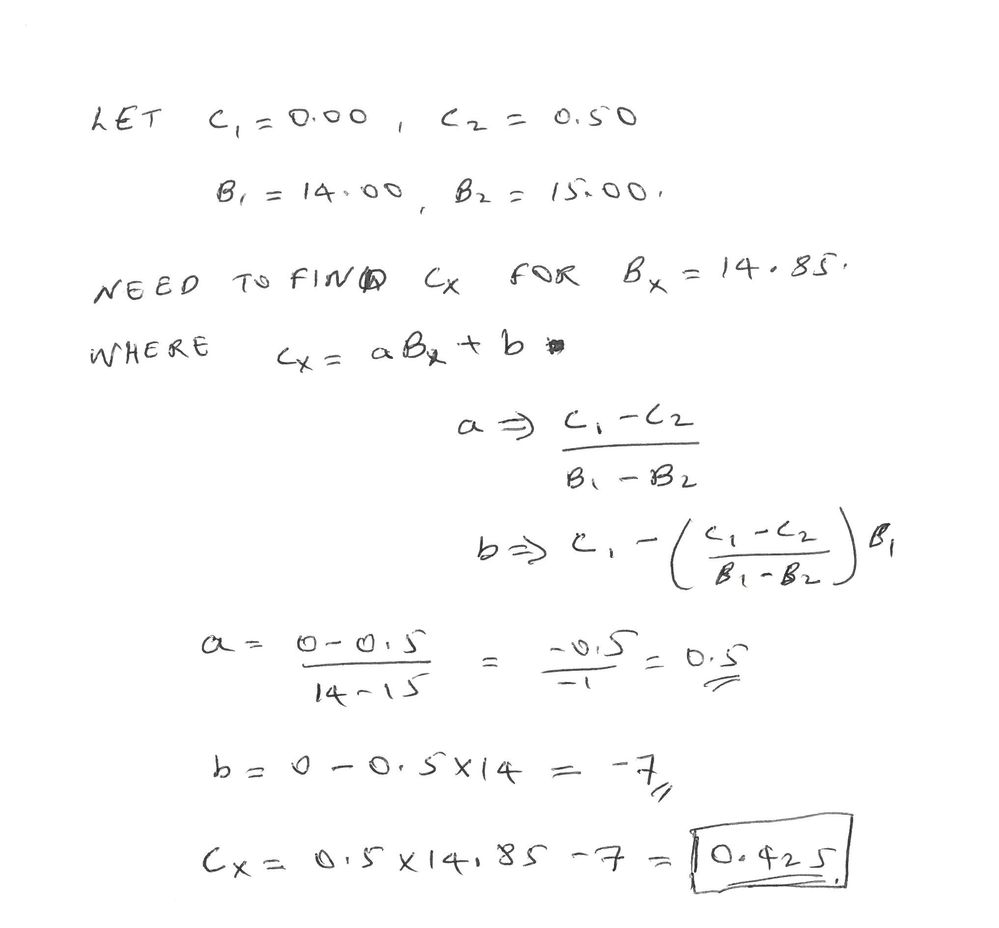 LET C₁ = 0.00 , C₂ = 0.50
B₁ = 14.00 , B₂ = 15.00.
NEED TO FIND Cx FOR Bx = 14.85.
WHERE Cx = a Bx + b
a ⇒ (C₁ - C₂) / (B₁ - B₂)
b ⇒ C₁ - ((C₁ - C₂) / (B₁ - B₂)) B₁
a = (0 - 0.5) / (14 - 15) = -0.5 / -1 = 0.5
b = 0 - 0.5 × 14 = -7
Cx = 0.5 × 14.85 - 7 = 0.425